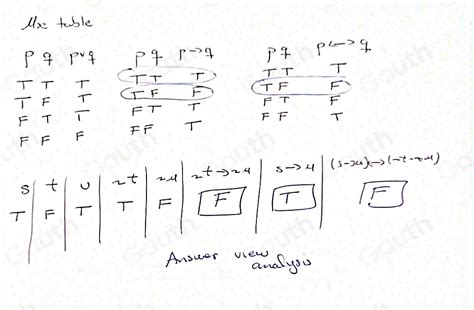 table
p q p∨q    p q p→q    p q p↔q
T T T    T T T    T T T
T F T    T F F    T F F
F T T    F T T    F T F
F F F    F F T    F F T
s | t | u | ~t | ~u | ~t→~u | s→u | (s→u)↔(~t→~u)
T | F | T | T | F | F | T | F
Answer view
analysis